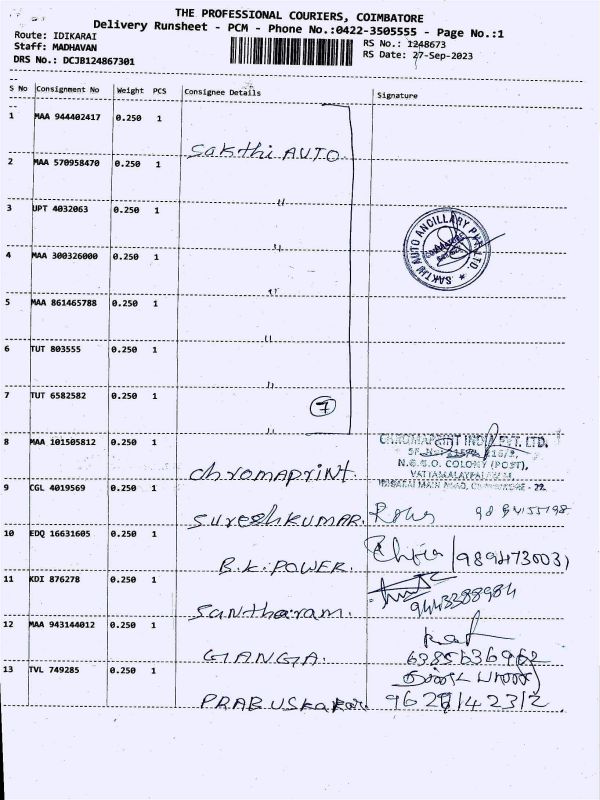 THE PROFESSIONAL COURIERS, COIMBATORE
Delivery Runsheet - PCM - Phone No.:0422-3505555 - Page No.:1
Route: IDIKARAI
RS No.: 1248673
Staff: MADHAVAN
RS Date: 27-Sep-2023
DRS No.: DCJB124867301
S No Consignment No Weight PCS Consignee Details Signature
1 MAA 944402417 0.250 1
Sakthi AUTO
2 MAA 570958470 0.250 1
"
3 UPT 4032063 0.250 1
"
SAKTHI AUTO ANCILLARY PVT. LTD.
4 MAA 300326000 0.250 1
"
5 MAA 861465788 0.250 1
"
6 TUT 803555 0.250 1
"
7 TUT 6582582 0.250 1
7
"
8 MAA 101505812 0.250 1
CHROMAPRINT INDIA PVT. LTD.
N.G.G.O. COLONY (POST),
chromaprint.
9 CGL 4019569 0.250 1
SureshKUMAR.
10 EDQ 16631605 0.250 1
B.K. POWER.
11 KDI 876278 0.250 1
9443288984
Santharam.
12 MAA 943144012 0.250 1
GANGA.
6385636962
13 TVL 749285 0.250 1